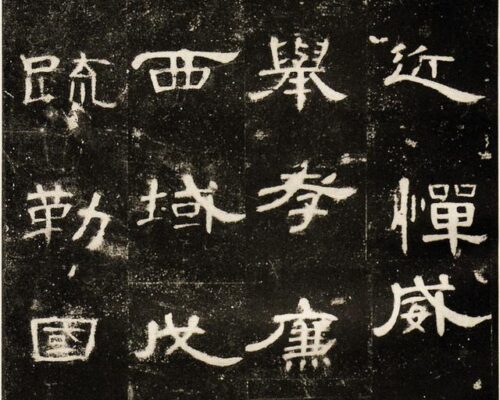 近憚威
舉孝廉
西域戊
疏勒國